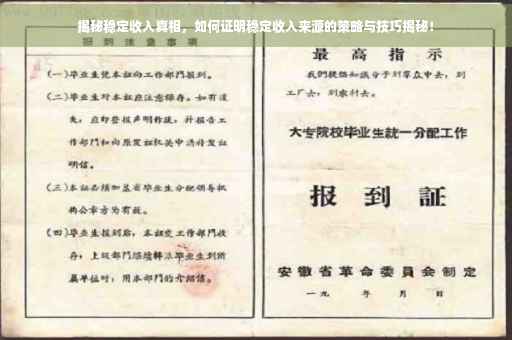 揭秘稳定收入真相，如何证明稳定收入来源的策略与技巧揭秘！
报到注意事项
(一)毕业生凭本证向工作部门报到。
(二)毕业生对本证应注意保存。如有遗
失，应即登报声明作废，并报告工
作部门和向原发证机关申请补发证
明信。
(三)本证必须加盖省毕业生分配领导机
构公章方为有效。
(四)毕业生报到后，本证交工作部门收
存；上级部门继续转派毕业生到所
属单位时，用本部门的介绍信。
最高指示
我们提倡知识分子到群众中去，到
工厂去，到农村去。
大专院校毕业生统一分配工作
报到証
安徽省革命委員会制定
一九 年 月 日